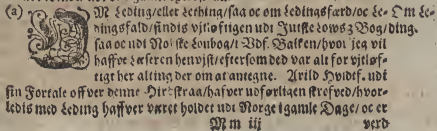 (a) OM Leding/eller Lething/saa oc om Ledingsfard/oc Le- Om Le-
dingsfald/findis vjtløftigen udi Jutske Lows 3 Bog/ ding.
saa oc udi Norske Lonbog/t Udf. Balken/hvor jeg vil
haffve Læseren henvjst/efterfom ded var alt for vjtløf-
tigt her alting der om at antegne. Arild Hvidtf. udi
sin Fortale offver denne Hirdskraa/hafver udførligen skrefved/hvor-
ledis med Leding haffver været holdet udi Norge i gamle Dage/oc er
M m iij verd